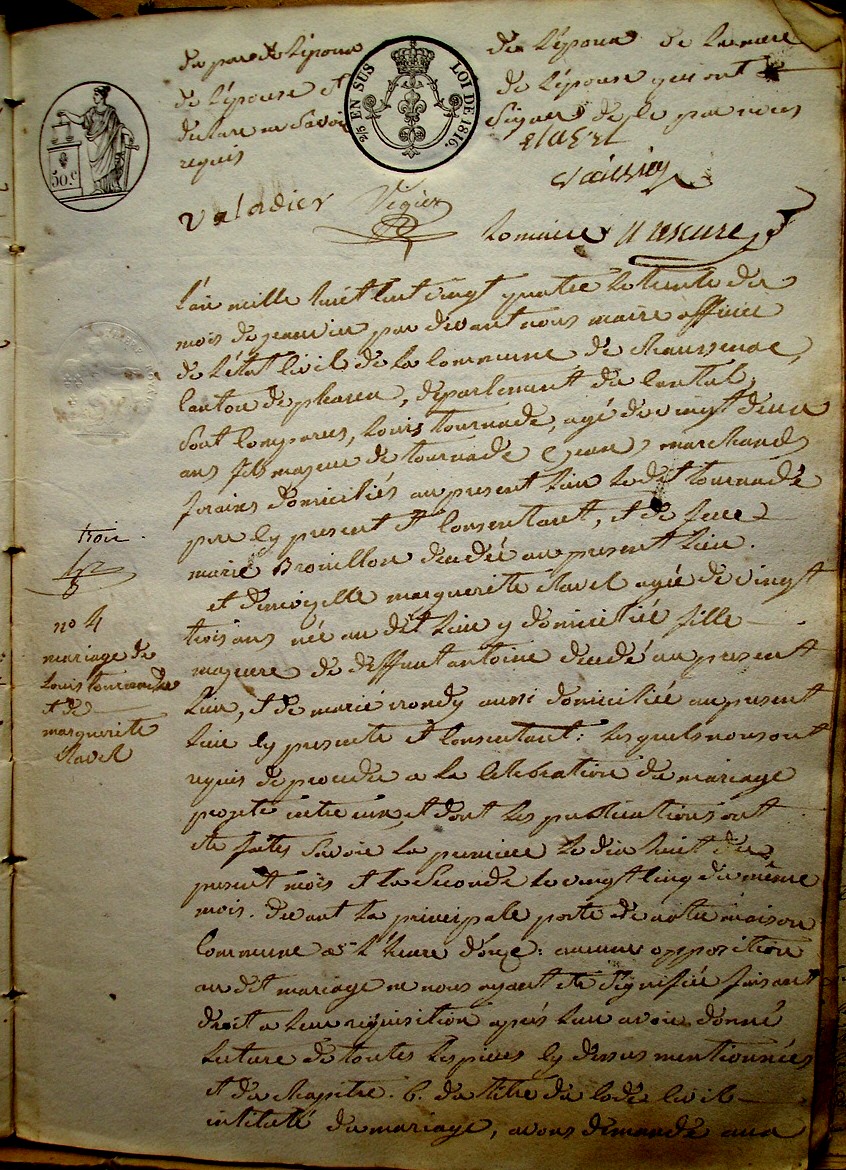 du pere de l'épouse
de l'épouse et
declare ne savoir
requis
de l'épouse de la mere
de l'épouse qui ont
signer de ce par nous
2/5 EN SUS LOI DE 1816.
50.c
valadier Vigier
Lemaire
l'an mille huit cent vingt quatre le trente du
mois de jeanvier par devant nous maire officier
de l'état civil de la commune de chaussenac,
canton de pleaux, département du cantal,
sont comparus, louis tournade, agé de vingt deux
ans fils majeur de tournade (jean) marchands
forains domiciliés au present lieu le dit tournade
pere cy present et consentant, et de feue
marie Brouillon decedée au present lieu.
et demoizelle marguerite clavel agée de vingt
trois ans née au dit lieu y domiciliée fille
majeure de deffunt antoine decedé au present
lieu, et de marie rondy aussi domiciliée au present
lieu cy presente et consentant: lesquels nous ont
requis de proceder a la celebration du mariage
projeté entre eux, et dont les publications ont
ete faites savoir la premiere le dix huit du
present mois et la seconde le vingt cinq du même
mois. devant la principale porte de notre maison
commune a l'heure d'onze: aucune opposition
au dit mariage ne nous ayant ete signifiée faisant
droit a leur requisition après leur avoir donné
lecture de toutes les pieces cy dessus mentionnées
et du chapitre. 6. du titre du code civil
intitulé du mariage, avons demandé aux
trois
n° 4
mariage de
louis tournade
et de
marguerite
clavel